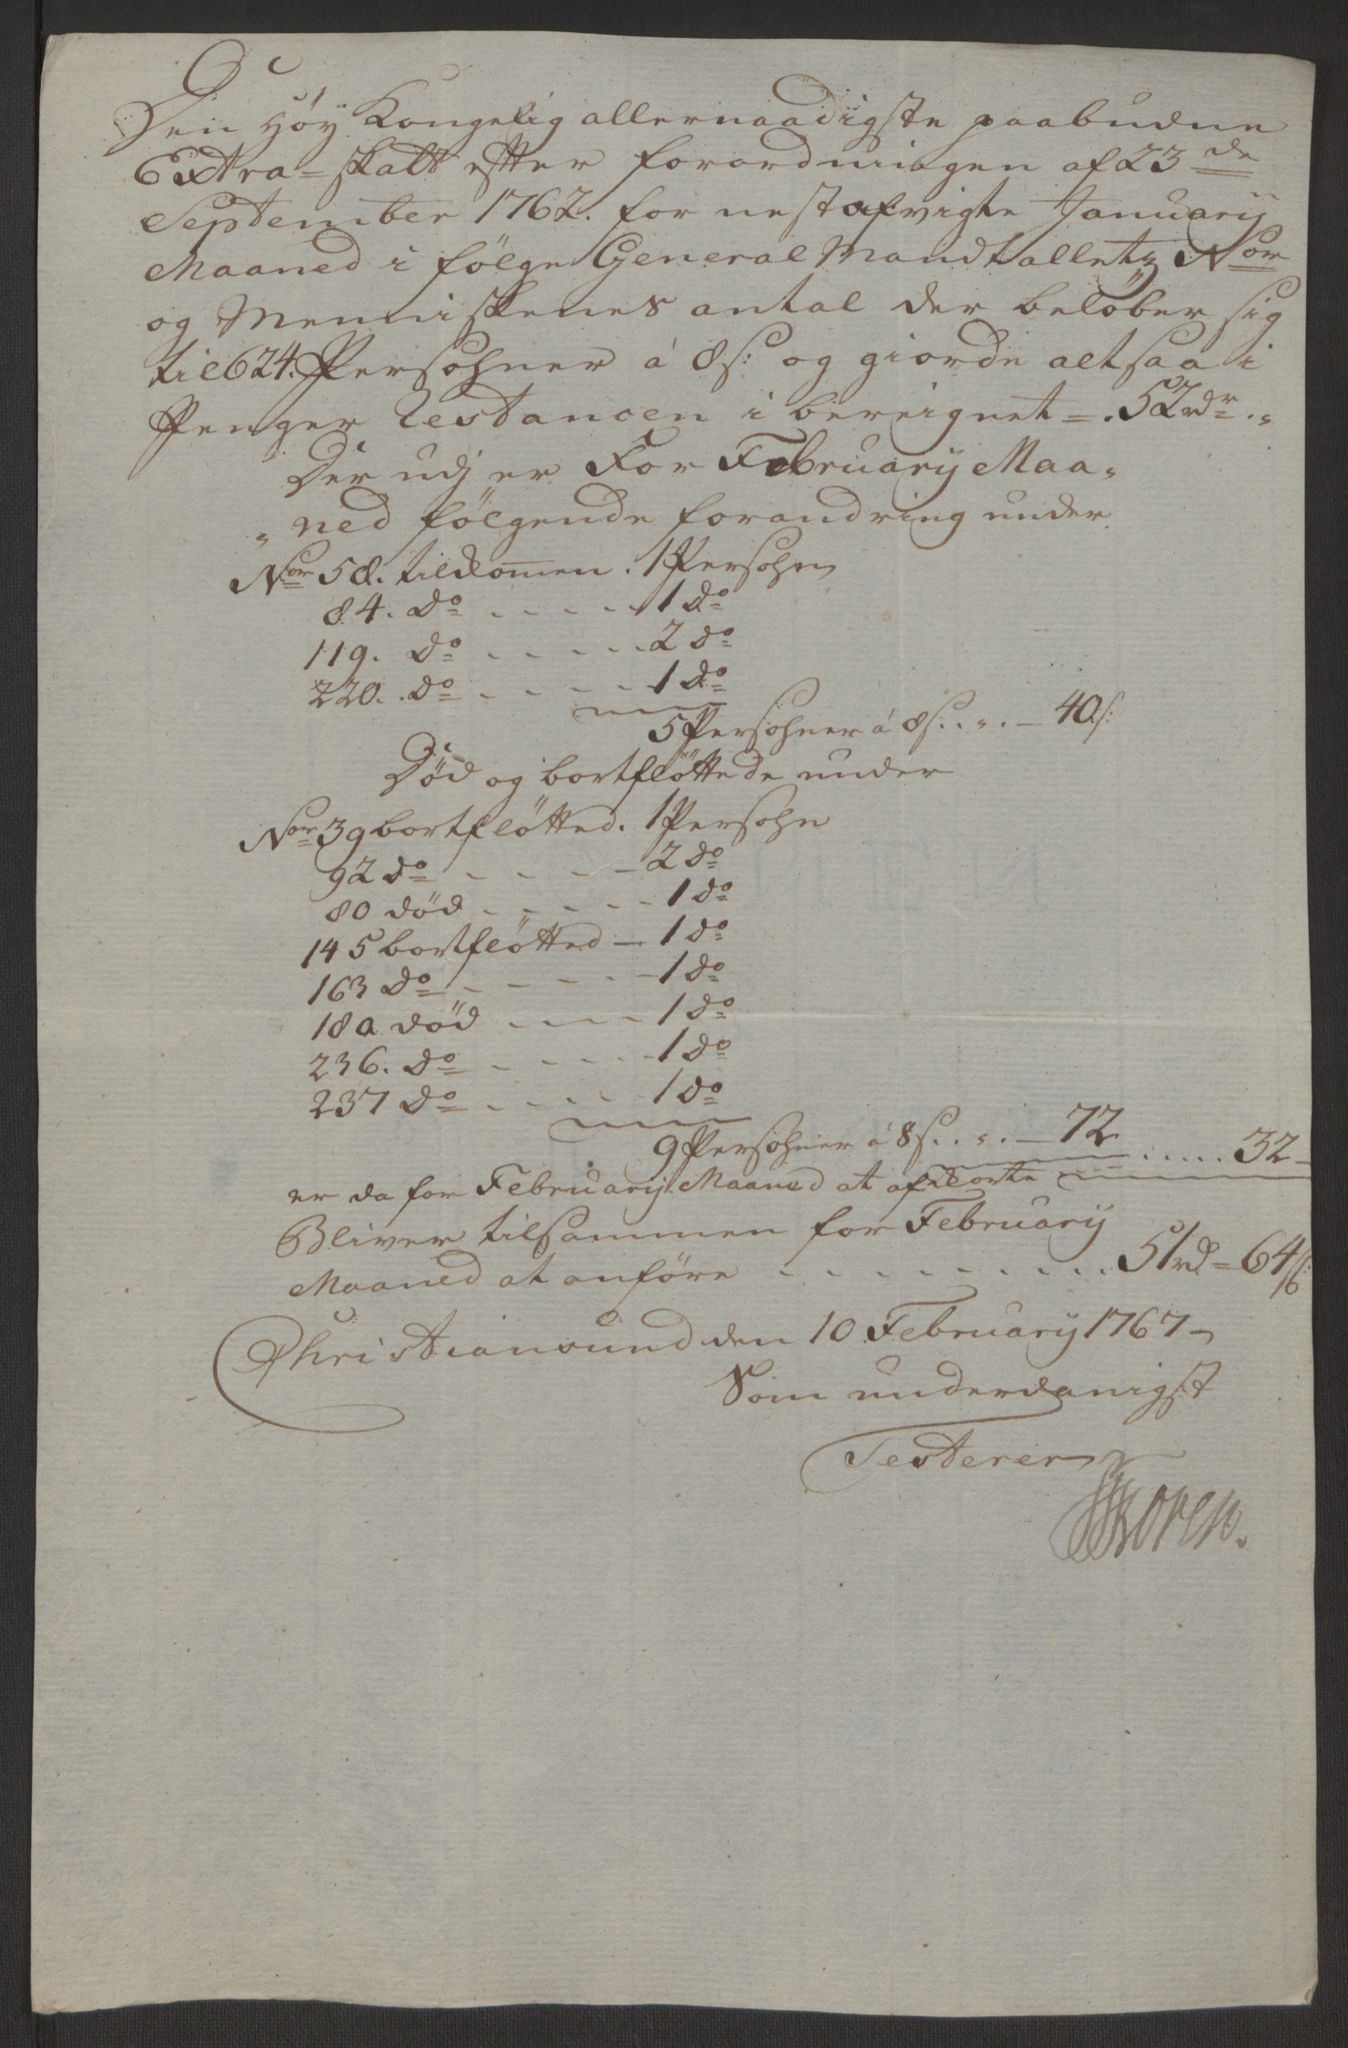 Den Höy Kongelig allernaadigste paabudne
Extra-skatt efter forordningen af 23de
September 1762. for nestafvigte January
Maaned i fölge General Mandtallets Nor
og Menniskenes antal der belöber sig
til 624. Persohner á 8s: og giorde altsaa i
Penger Restancen i bereignet = . 52rdr. „
Der udj er For February Maa„
„ned fölgende forandring under
Nor 58. tilkomen. 1 Persohn
84. do - - - - - 1 do
119. do - - - - - 2 do
220. do - - - - - 1 do
5 Persohner á 8s. . „ . - 40s:
Död og bortflöttede under
Nor 39 bortflötted. 1 Persohn
92 do - - - - - 2 do
80 död - - - - - 1 do
145 bortflötted - 1 do
163 do - - - - - 1 do
180 död - - - - 1 do
236. do - - - - - 1 do
237 do - - - - - 1 do
9 Persohner á 8s. . „ . - 72 . . . . . 32 -
er da for February Maaned at afkorte
Bliver tilsammen for February
Maaned at anföre - - - - - - - - - 51rd = 64s:
Christiansund den 10 February 1767 -
Som underdanigst
Testerer
Koren.